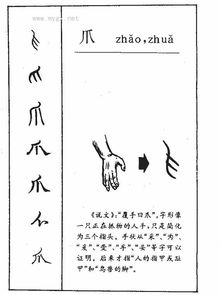 www.mygx.net
爪 zhǎo,zhuǎ
《说文》:“覆手曰爪”。字形像
一只正在抓物的人手,只是简化
为三个指头。手状从“采”、“为”、
“受”、“孚”、“妥”等字可以
证明。后来才指“人的指甲或趾
甲”和“鸟兽的脚”。